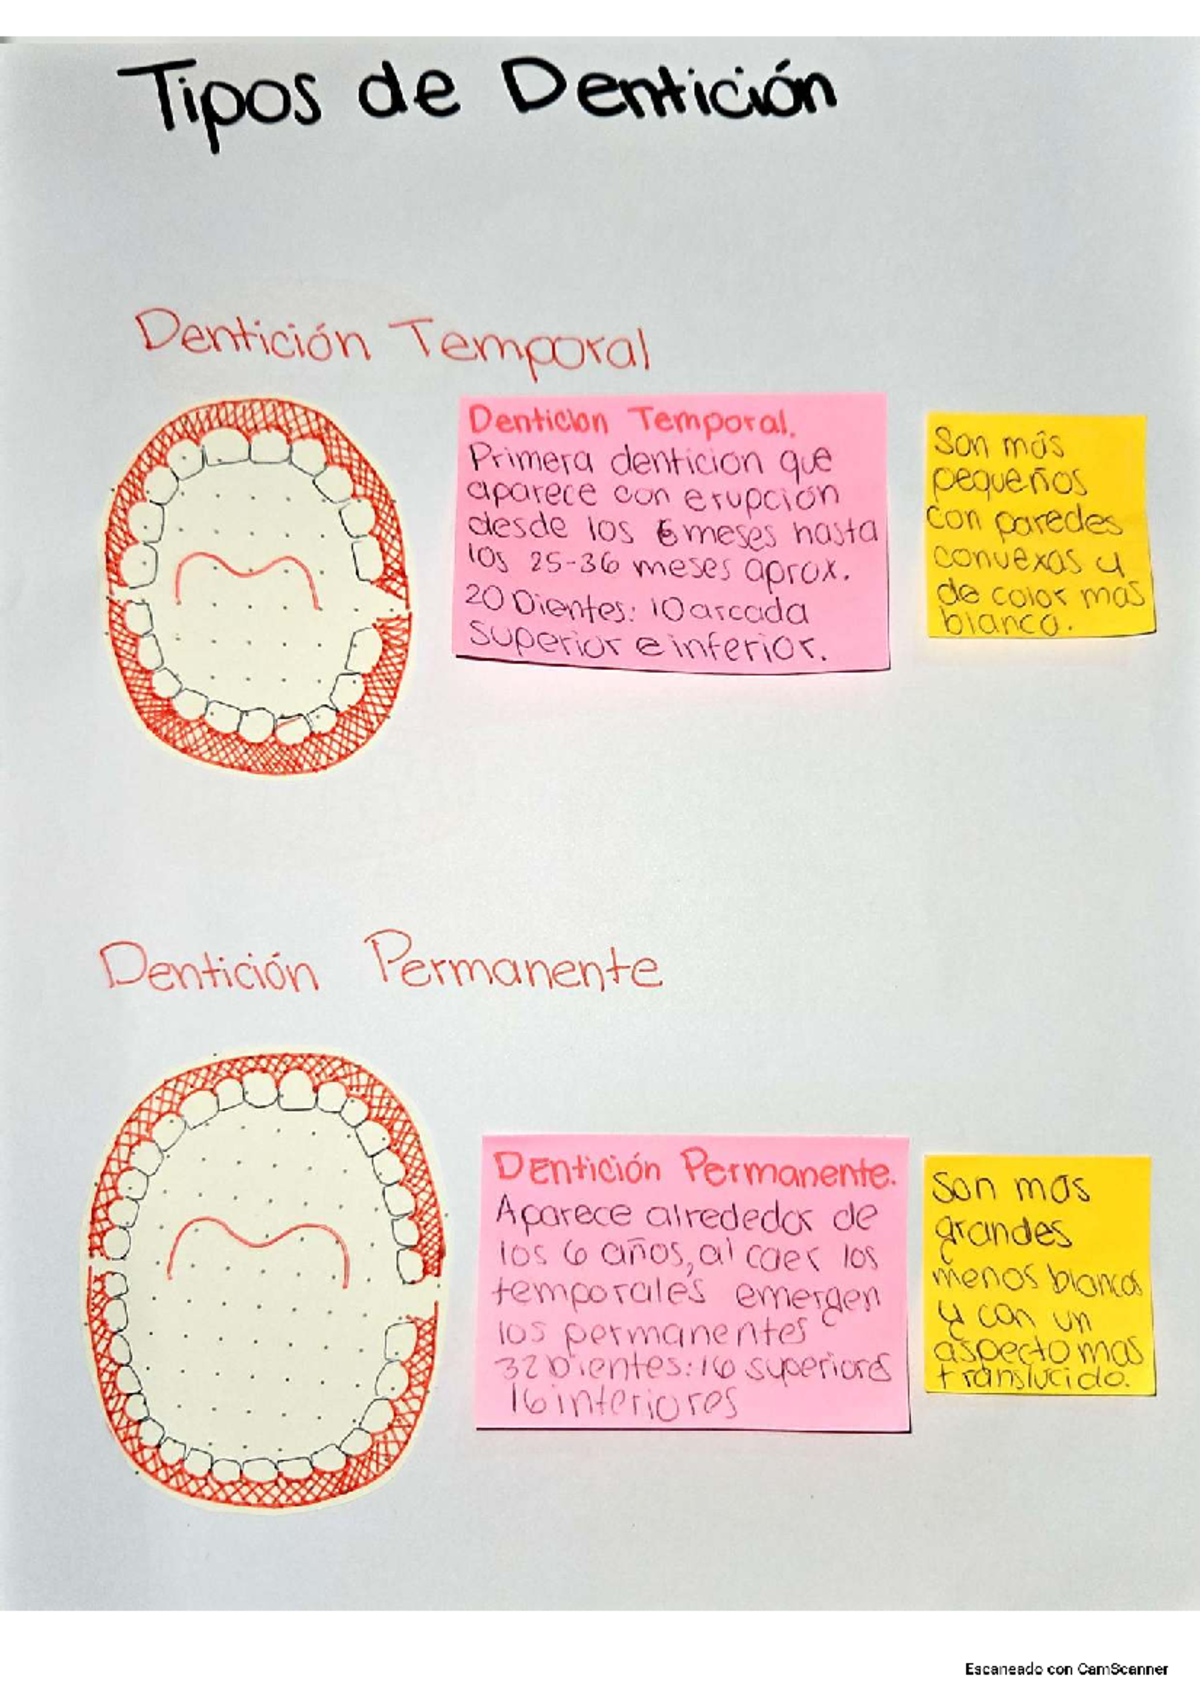 Tipos de Dentición
Dentición Temporal
Denticion Temporal.
Primera denticion que
aparece con erupción
desde los 6 meses hasta
los 25-36 meses aprox.
20 Dientes: 10 arcada
superior e inferior.
Son más
pequeños
con paredes
convexas y
de color mas
blanco.
Dentición Permanente
Dentición Permanente.
Aparece alrededor de
los 6 años, al caer los
temporales emergen
los permanentes
32 Dientes: 16 superiores
16 inferiores
Son mas
grandes
menos blancos
y con un
aspecto mas
translucido.
Escaneado con CamScanner